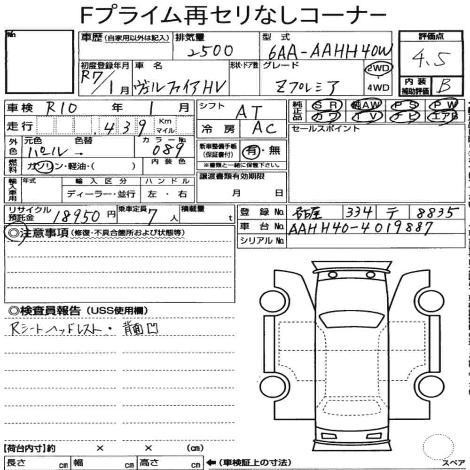 Fプライム再セリなしコーナー
車歴 (自家用以外は記入) 排気量 2500 型式 6AA-AAHH40W 評価点 4.5
初度登録年月 R7/1月 車名 ヴェルファイアHV 形状・ドア数 グレード Zプレミア 2WD・4WD 内装補助評価 B
車検 R10年1月 シフト AT 純正品 SR 純AW PS PW
走行 .439 Km マイル 冷房 AC カワ TV ナビ エアB
外色 元色 パール 色替 カラーNo. 089 新車整備手帳(保証書付) 有・無 ※書類と一緒に保管下さい。 セールスポイント
燃料 ガソリン・軽油・( ) 内装色
輸入車用 年式 輸入区分 ディーラー・並行 ハンドル 左・右 譲渡書類有効期限 月 日
リサイクル預託金 18950円 乗車定員 7人 積載量 t
登録No. 名古屋 334 テ 8835
車台No. AAHH40-4019887
シリアルNo.
◎注意事項 (修復・不具合箇所および状態等)
◎検査員報告 (USS使用欄)
Rシートヘッドレスト・背面凹
【荷台内寸】約 × × (cm)
長さ cm 幅 cm 高さ cm ←(車検証上の寸法)
スペア